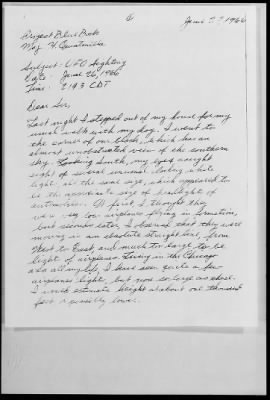 June 27, 1966
Project Blue Book
Maj. H. Quintanilla
Subject: UFO Sighting
Date: June 26, 1966
Time: 2143 CDT
Dear Sir,
Last night I stepped out of my house for my
usual walk with my dog. I went to
the corner of our block, which has an
almost unobstructed view of the southern
sky. Looking South, my eyes caught
sight of several unusual looking white
lights, all the same size, which appeared to
be the approximate size of headlights of
automobiles. At first, I thought they
were very low airplanes flying in formation,
but seconds later, I observed that they were
moving in an absolute straight line, from
West to East, and much too large to be
lights of airplanes. Living in the Chicago
area all my life, I have seen quite a few
airplanes lights, but none so large as these.
I would estimate height at about one thousand
feet or possibly lower.